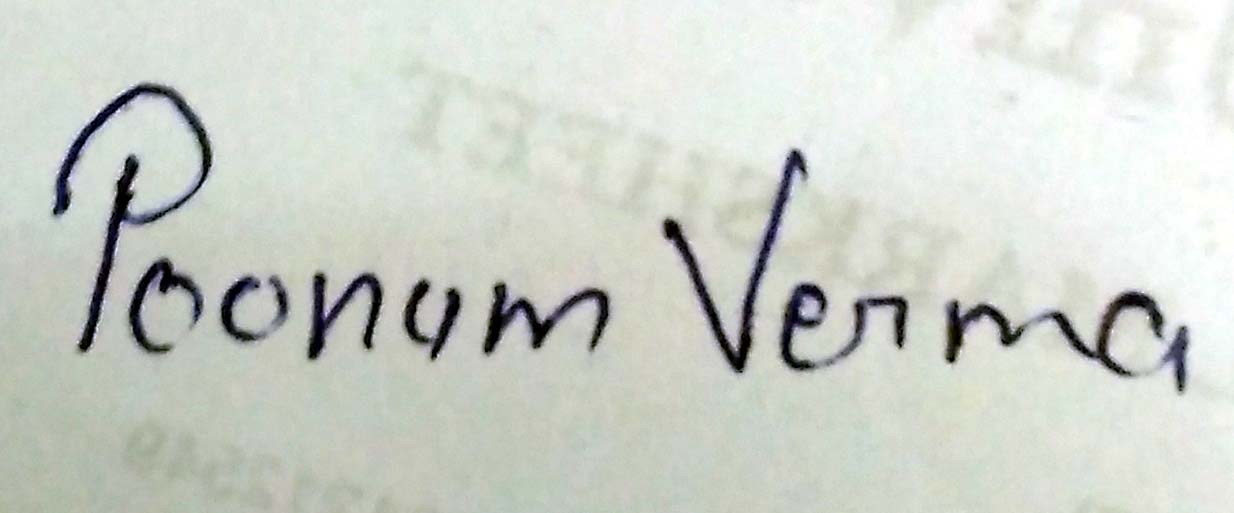 Poonam Verma